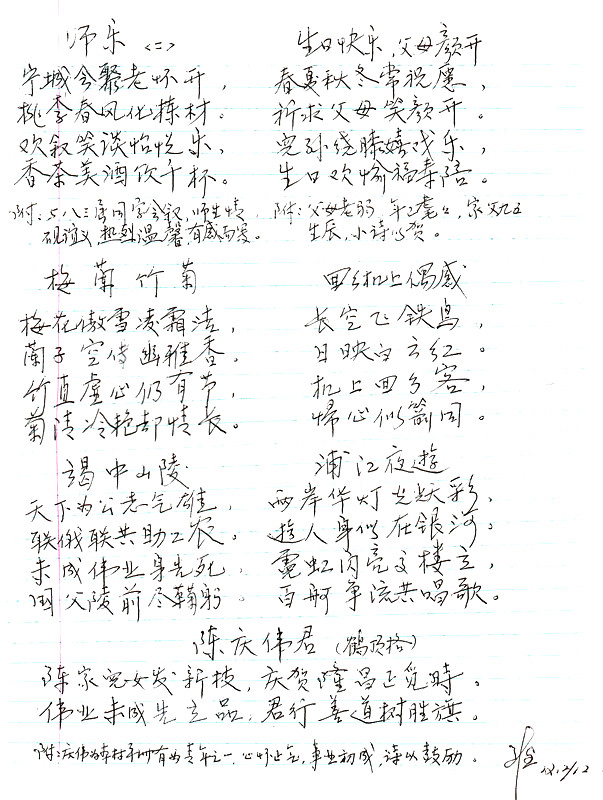 师乐 <二>
宁城会聚老怀开，
桃李春风化栋材。
欢叙笑谈怡悦乐，
香茶美酒饮千杯。
附：五八三届同学会叙，师生情
砚谊，热烈温馨有感而发。
生日快乐，父母颜开
春夏秋冬常祝愿，
祈求父母笑颜开。
儿孙绕膝嬉戏乐，
生日欢愉福寿陪。
附：父母老矣，年之耄耄，家父
生辰，小诗以贺。
梅蘭竹菊
梅花傲雪凌霜洁，
蘭子空传幽雅香。
竹直虚心仍有节，
菊清冷艳却情长。
回乡机上偶感
长空飞铁鸟，
日映白云红。
机上回乡客，
帰心似箭同。
谒中山陵
天下为公志气雄，
联俄联共助工农。
未成伟业身先死，
国父陵前尽鞠躬。
浦江夜遊
两岸华灯尤妖彩，
遊人身似在银河。
霓虹闪亮文楼立，
百舸争流共唱歌。
陈庆伟君（鹤顶格）
陈家儿女发新枝，庆贺隆昌正笕時。
伟业未成先立品，君行善道树胜旗。
附：庆伟为本村有为青年之一，心怀正气，事业初成，诗以鼓励。
12/12